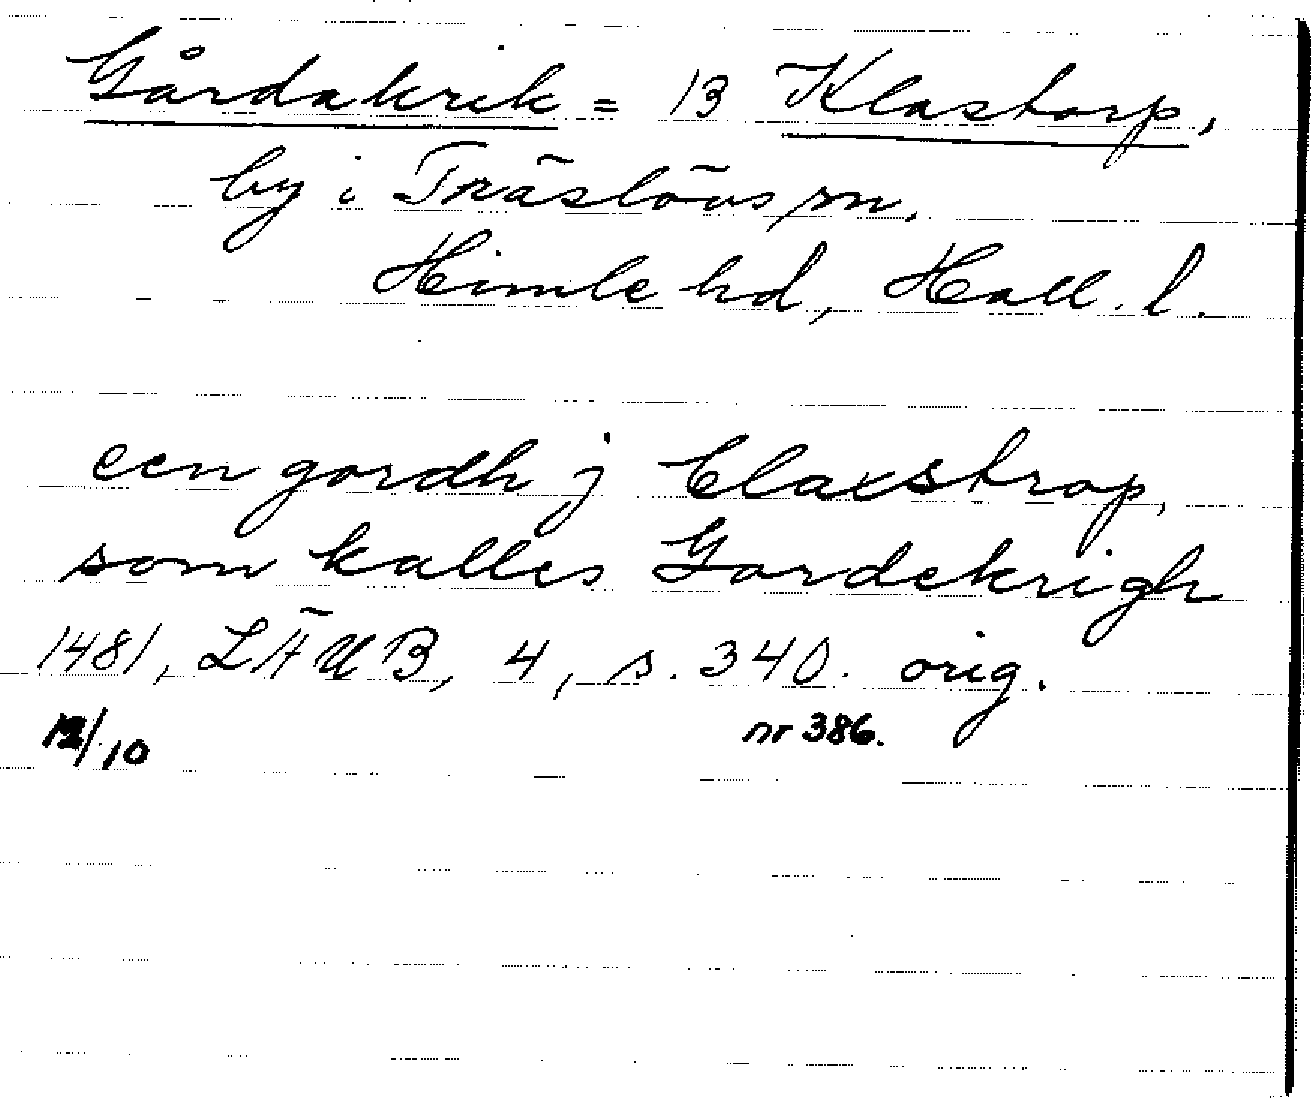 Gårdakrik = 13 Klastorp,
by i Träslövs sn.
Himle hd, Hall. l.
een gordh j Claxstrop,
som kalles Gordekrigh
1481, LÄUB, 4, s. 340. orig.
12/10 nr 386.